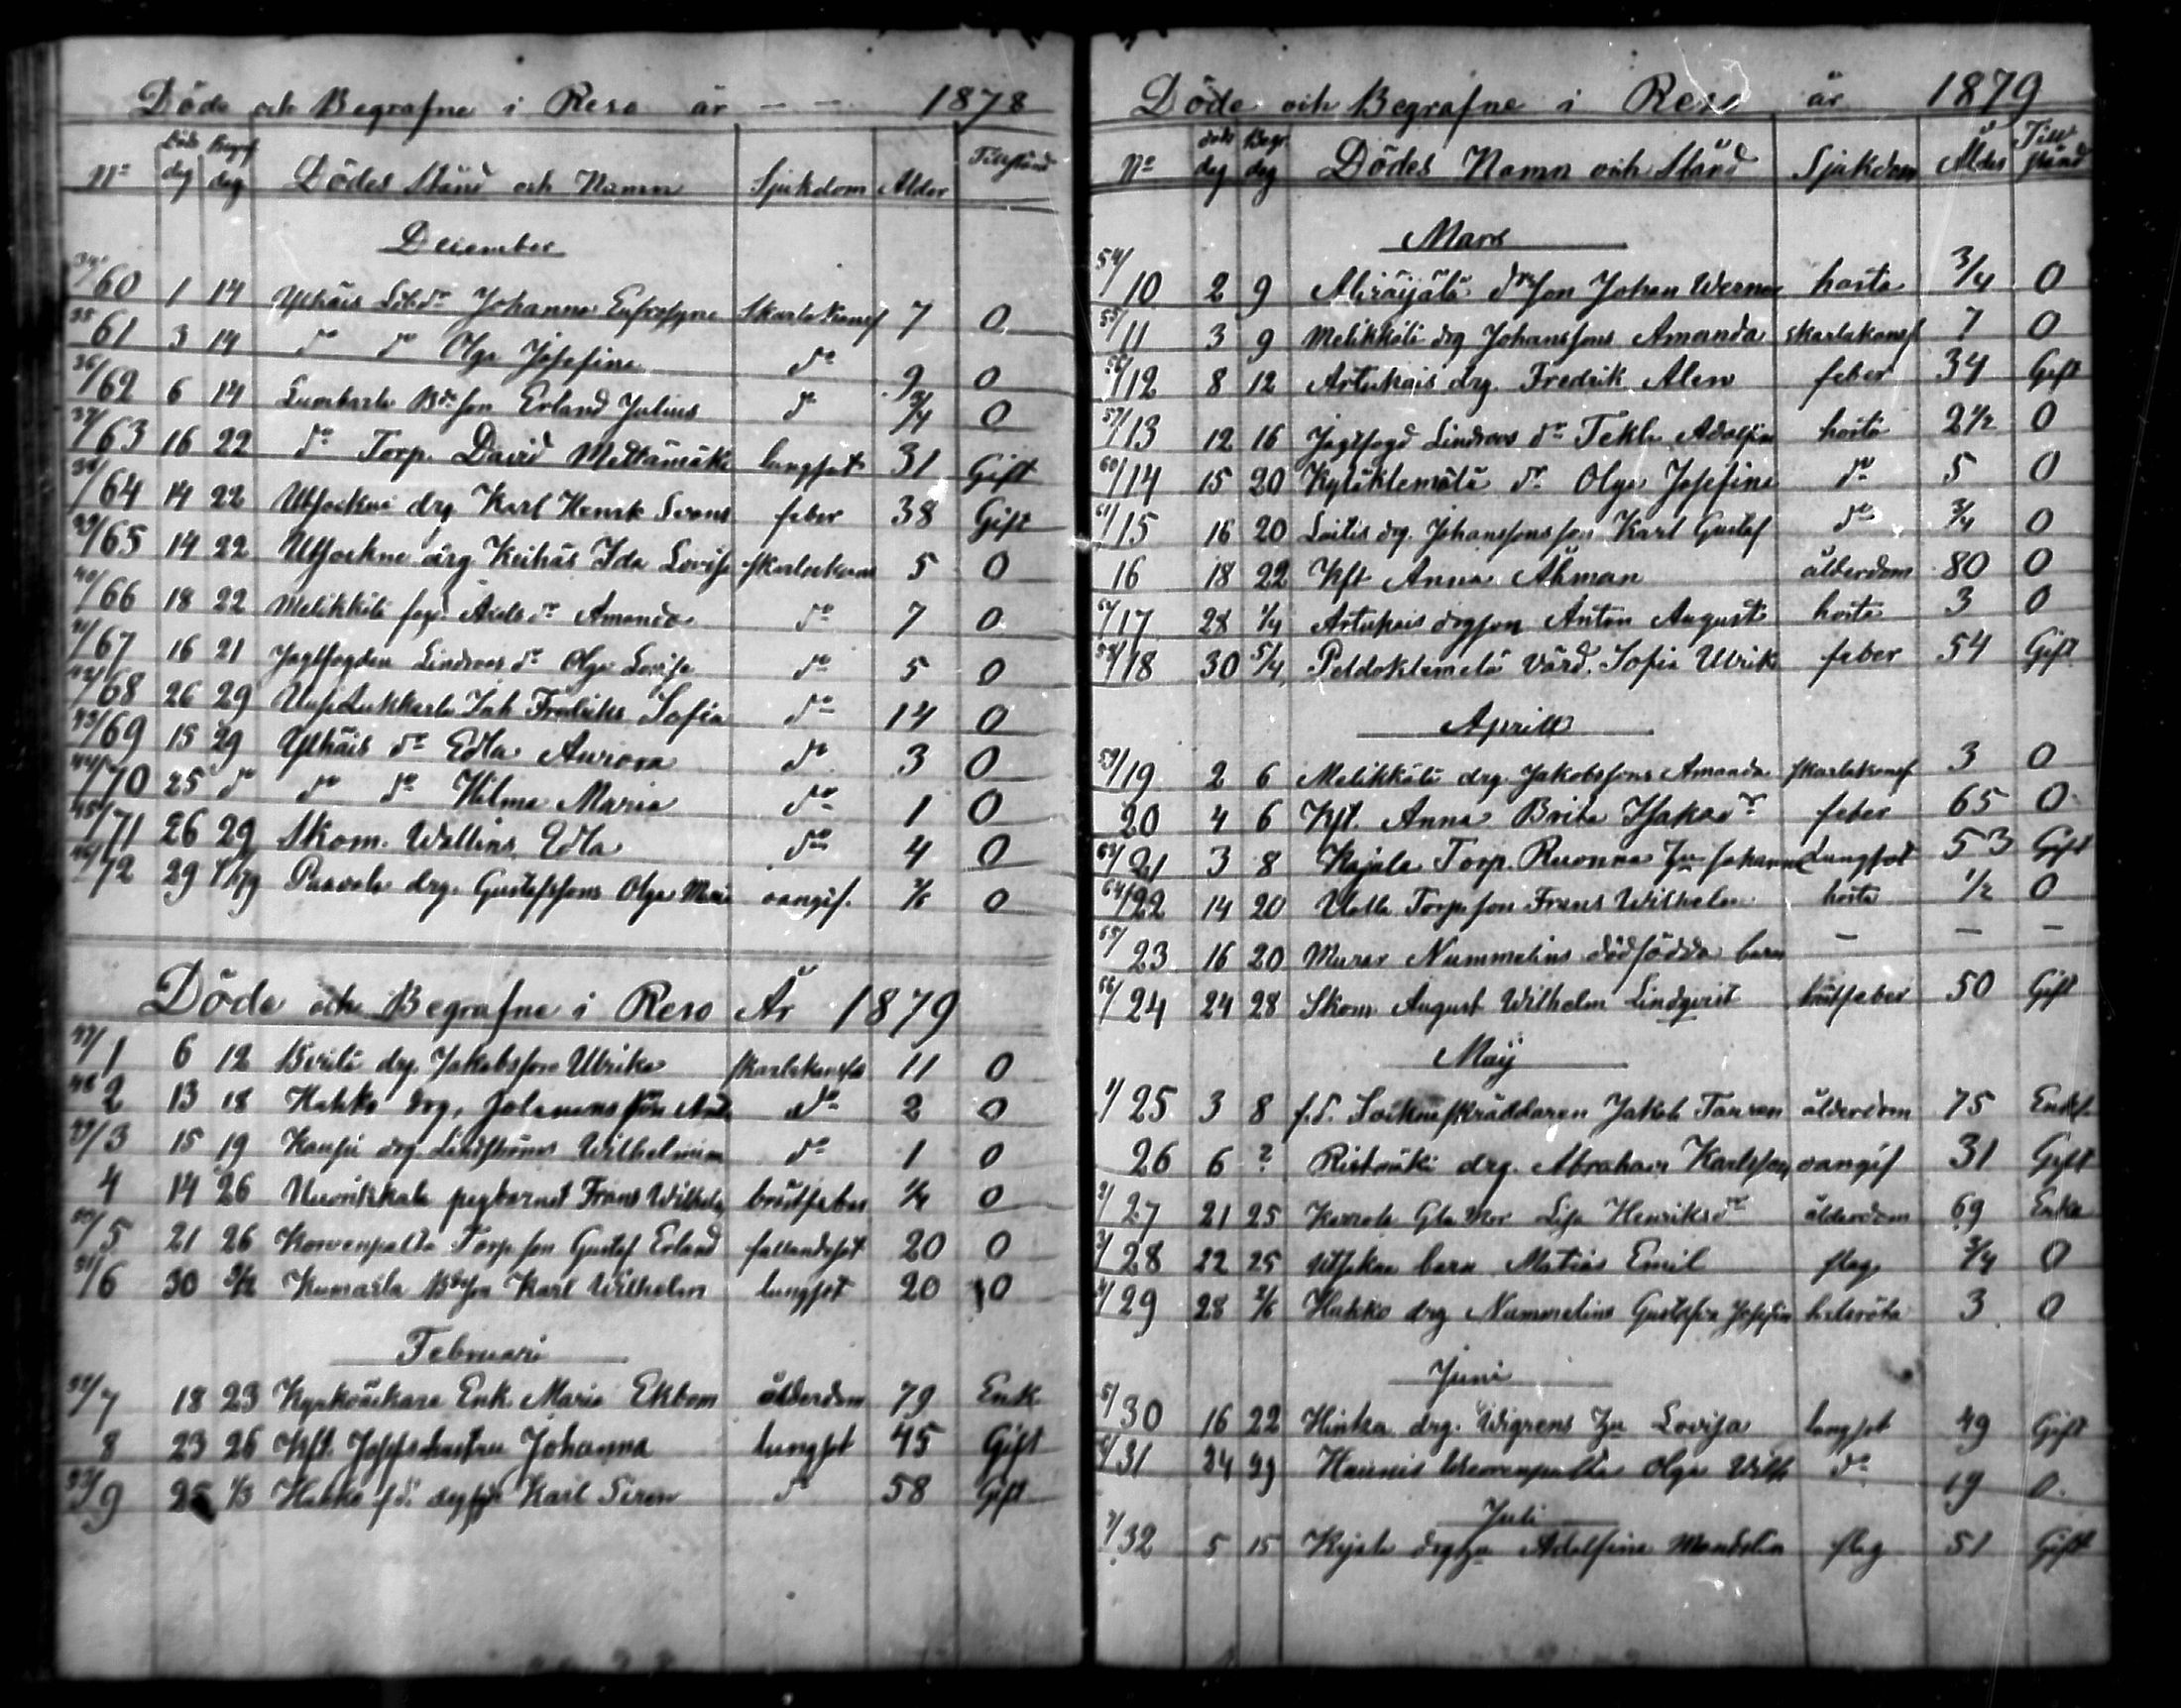 Döde och Begrafne i Reso år — — 1878
No Död dag Begraf dag Dödes Stånd och Namn Sjukdom Ålder Tillstånd
December
34/60 1 14 Ylhäis Johanna Eufrosyne Skarlakansf 7 0
35/61 3 14 do do Olga Josefina do 9 0
36/62 6 14 Lumbarla Bd. son Erland Julius do 3/4 0
37/63 16 22 do Torp. David Mettämäki lungsot 31 Gift
38/64 14 22 Utsockne drg Karl Henrik feber 38 Gift
39/65 14 22 Utsockne drg Keihäs Ida Lovisa skarlakans 5 0
40/66 18 22 Melikkälä Axels dr Amanda do 7 0
41/67 16 21 Jagtfogden Lindroos dr Olga Lovisa do 5 0
42/68 26 29 Fredriks Sofia do 14 0
43/69 15 29 Ylhäis dr Edla Aurora do 3 0
44/70 25 do do do Hilma Maria do 1 0
45/71 26 29 Skom. Wallins Edla do 4 0
46/72 29 1/79 drg. Gustafssons Olga Maria oangif. 0
Döde och Begrafne i Reso År 1879
47/1 6 12 drg. Jakobssons Ulrika skarlakansfe 11 0
48/2 13 18 Hakko drg. do 2 0
49/3 15 19 drg. Lindströms Wilhelmina do 1 0
4 14 26 Frans Wilhelm bröstfeber 1/4 0
50/5 21 26 Torp son Gustaf Erland fallandsot 20 0
51/6 30 2/2 Kumarla son Karl Wilhelm lungsot 20 0
Februari
52/7 18 23 Enk. Maria Ekbom ålderdom 79 Enk.
8 23 26 Kft. Johanna lungsot 45 Gift
53/9 25 1/3 Hakko f.d. Karl Siren do 58 Gift
Döde och Begrafne i Reso år 1879
No död dag Begr. dag Dödes Namn och Stånd Sjukdom Ålder Tillstånd
Mars
54/10 2 9 son Johan Werner hosta 3/4 0
55/11 3 9 Melikkälä drg Johanssons Amanda skarlakansf 7 0
56/12 8 12 Artukais drg. Fredrik Alen feber 34 Gift
57/13 12 16 Jagtfogd Lindroos dr Tekla Adolfina hosta 2 1/2 0
60/14 15 20 Kyläklemelä dr Olga Josefina do 5 0
61/15 16 20 drg. Johanssons son Karl Gustaf do 3/4 0
16 18 22 Kft Anna Åhman ålderdom 80 0
17 28 1/4 Artukais drgson Anton August hosta 3 0
58/18 30 5/4 Peldoklemelä Värd. Sofia Ulrika feber 54 Gift
Aprill
59/19 2 6 Melikkälä drg. Jakobssons Amanda skarlakansf 3 0
20 4 6 Kft. Anna Brita Isaksdr feber 65 0
63/21 3 8 Kajala Torp. Johanna Lungsot 53 Gift
64/22 14 20 Torp. son Frans Wilhelm hosta 1/2 0
65/23 16 20 Murar Nummelins dödfödda barn — — —
66/24 24 28 Skom August Wilhelm Lindqvist bröstfeber 50 Gift
Maÿ
1/25 3 8 f.d. Sockneskräddaren Jakob Tauren ålderdom 75 Enkl.
26 6 ? Ristmäki drg. Abraham Karlsson oangif 31 Gift
2/27 21 25 Lisa Henriksdr ålderdom 69 Enka
3/28 22 25 Utsokne barn Matias Emil slag 3/4 0
4/29 28 2/6 Hakko drg Nummelins Josefin halsröta 3 0
Juni
5/30 16 22 Hintsa drg. Wigrens Lovisa lungsot 49 Gift
6/31 24 29 Olga Wilh do 19 0.
Juli
7/32 5 15 Adolfina Mandelin slag 51 Gift